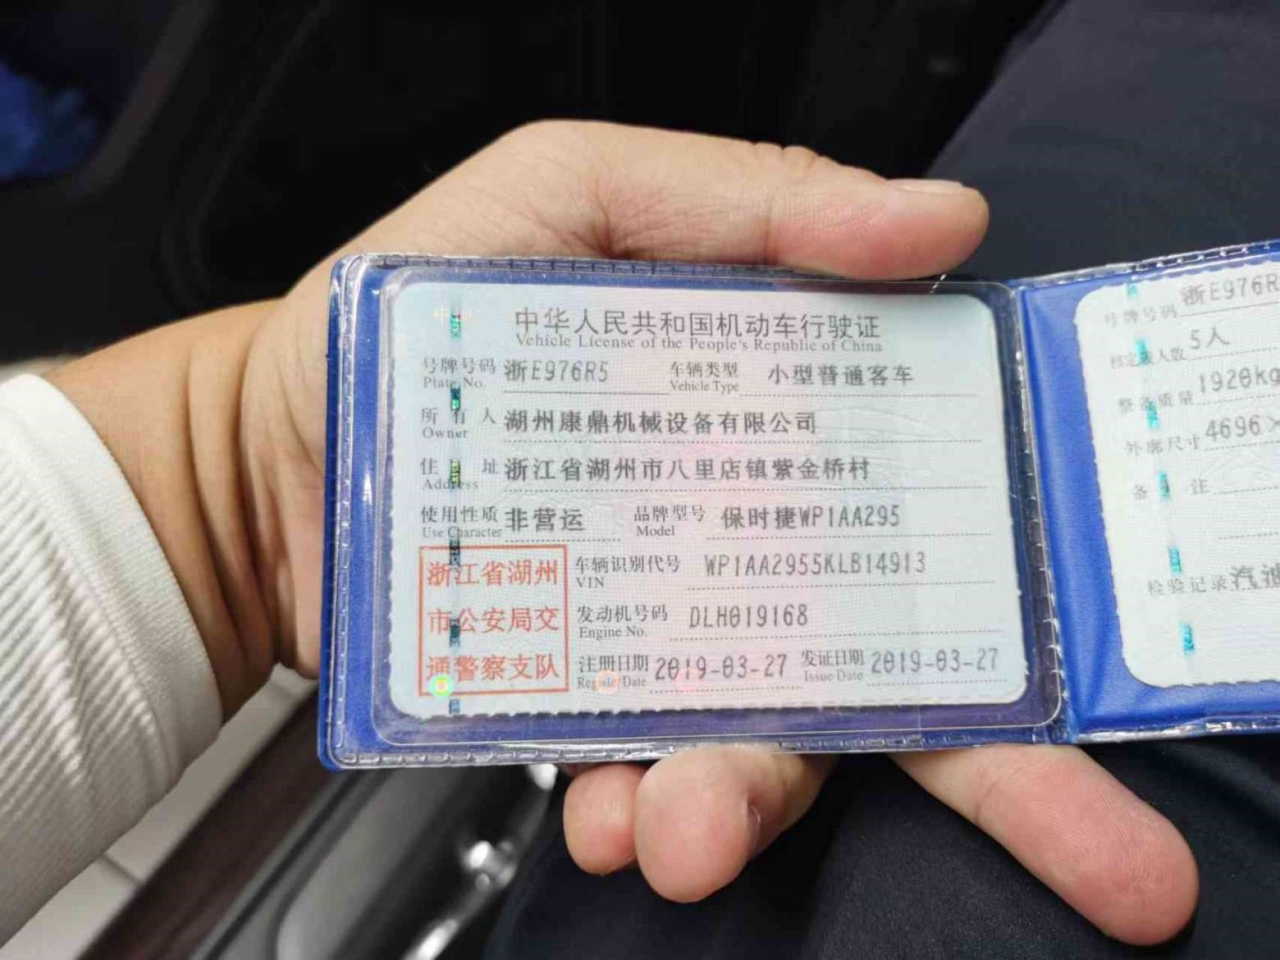 中华人民共和国机动车行驶证
Vehicle License of the People's Republic of China
号牌号码 浙E976R5 车辆类型 小型普通客车
Plate No. Vehicle Type
所有人 湖州康鼎机械设备有限公司
Owner
住址 浙江省湖州市八里店镇紫金桥村
Address
使用性质 非营运 品牌型号 保时捷WP1AA295
Use Character Model
浙江省湖州
市公安局交
通警察支队
车辆识别代号 WP1AA2955KLB14913
VIN
发动机号码 DLH019168
Engine No.
注册日期 2019-03-27 发证日期 2019-03-27
Register Date Issue Date
号牌号码 浙E976R
核定载人数 5人
整备质量 1920kg
外廓尺寸 4696×
备注
检验记录 汽油